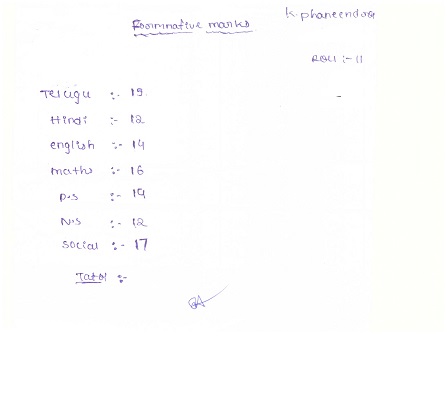 Foormnative marks
K. phaneendra
ROLL :- 11
Telugu :- 19.
Hindi :- 12
english :- 14
maths :- 16
p.s :- 19
N.s :- 12
social :- 17
Tatol :-